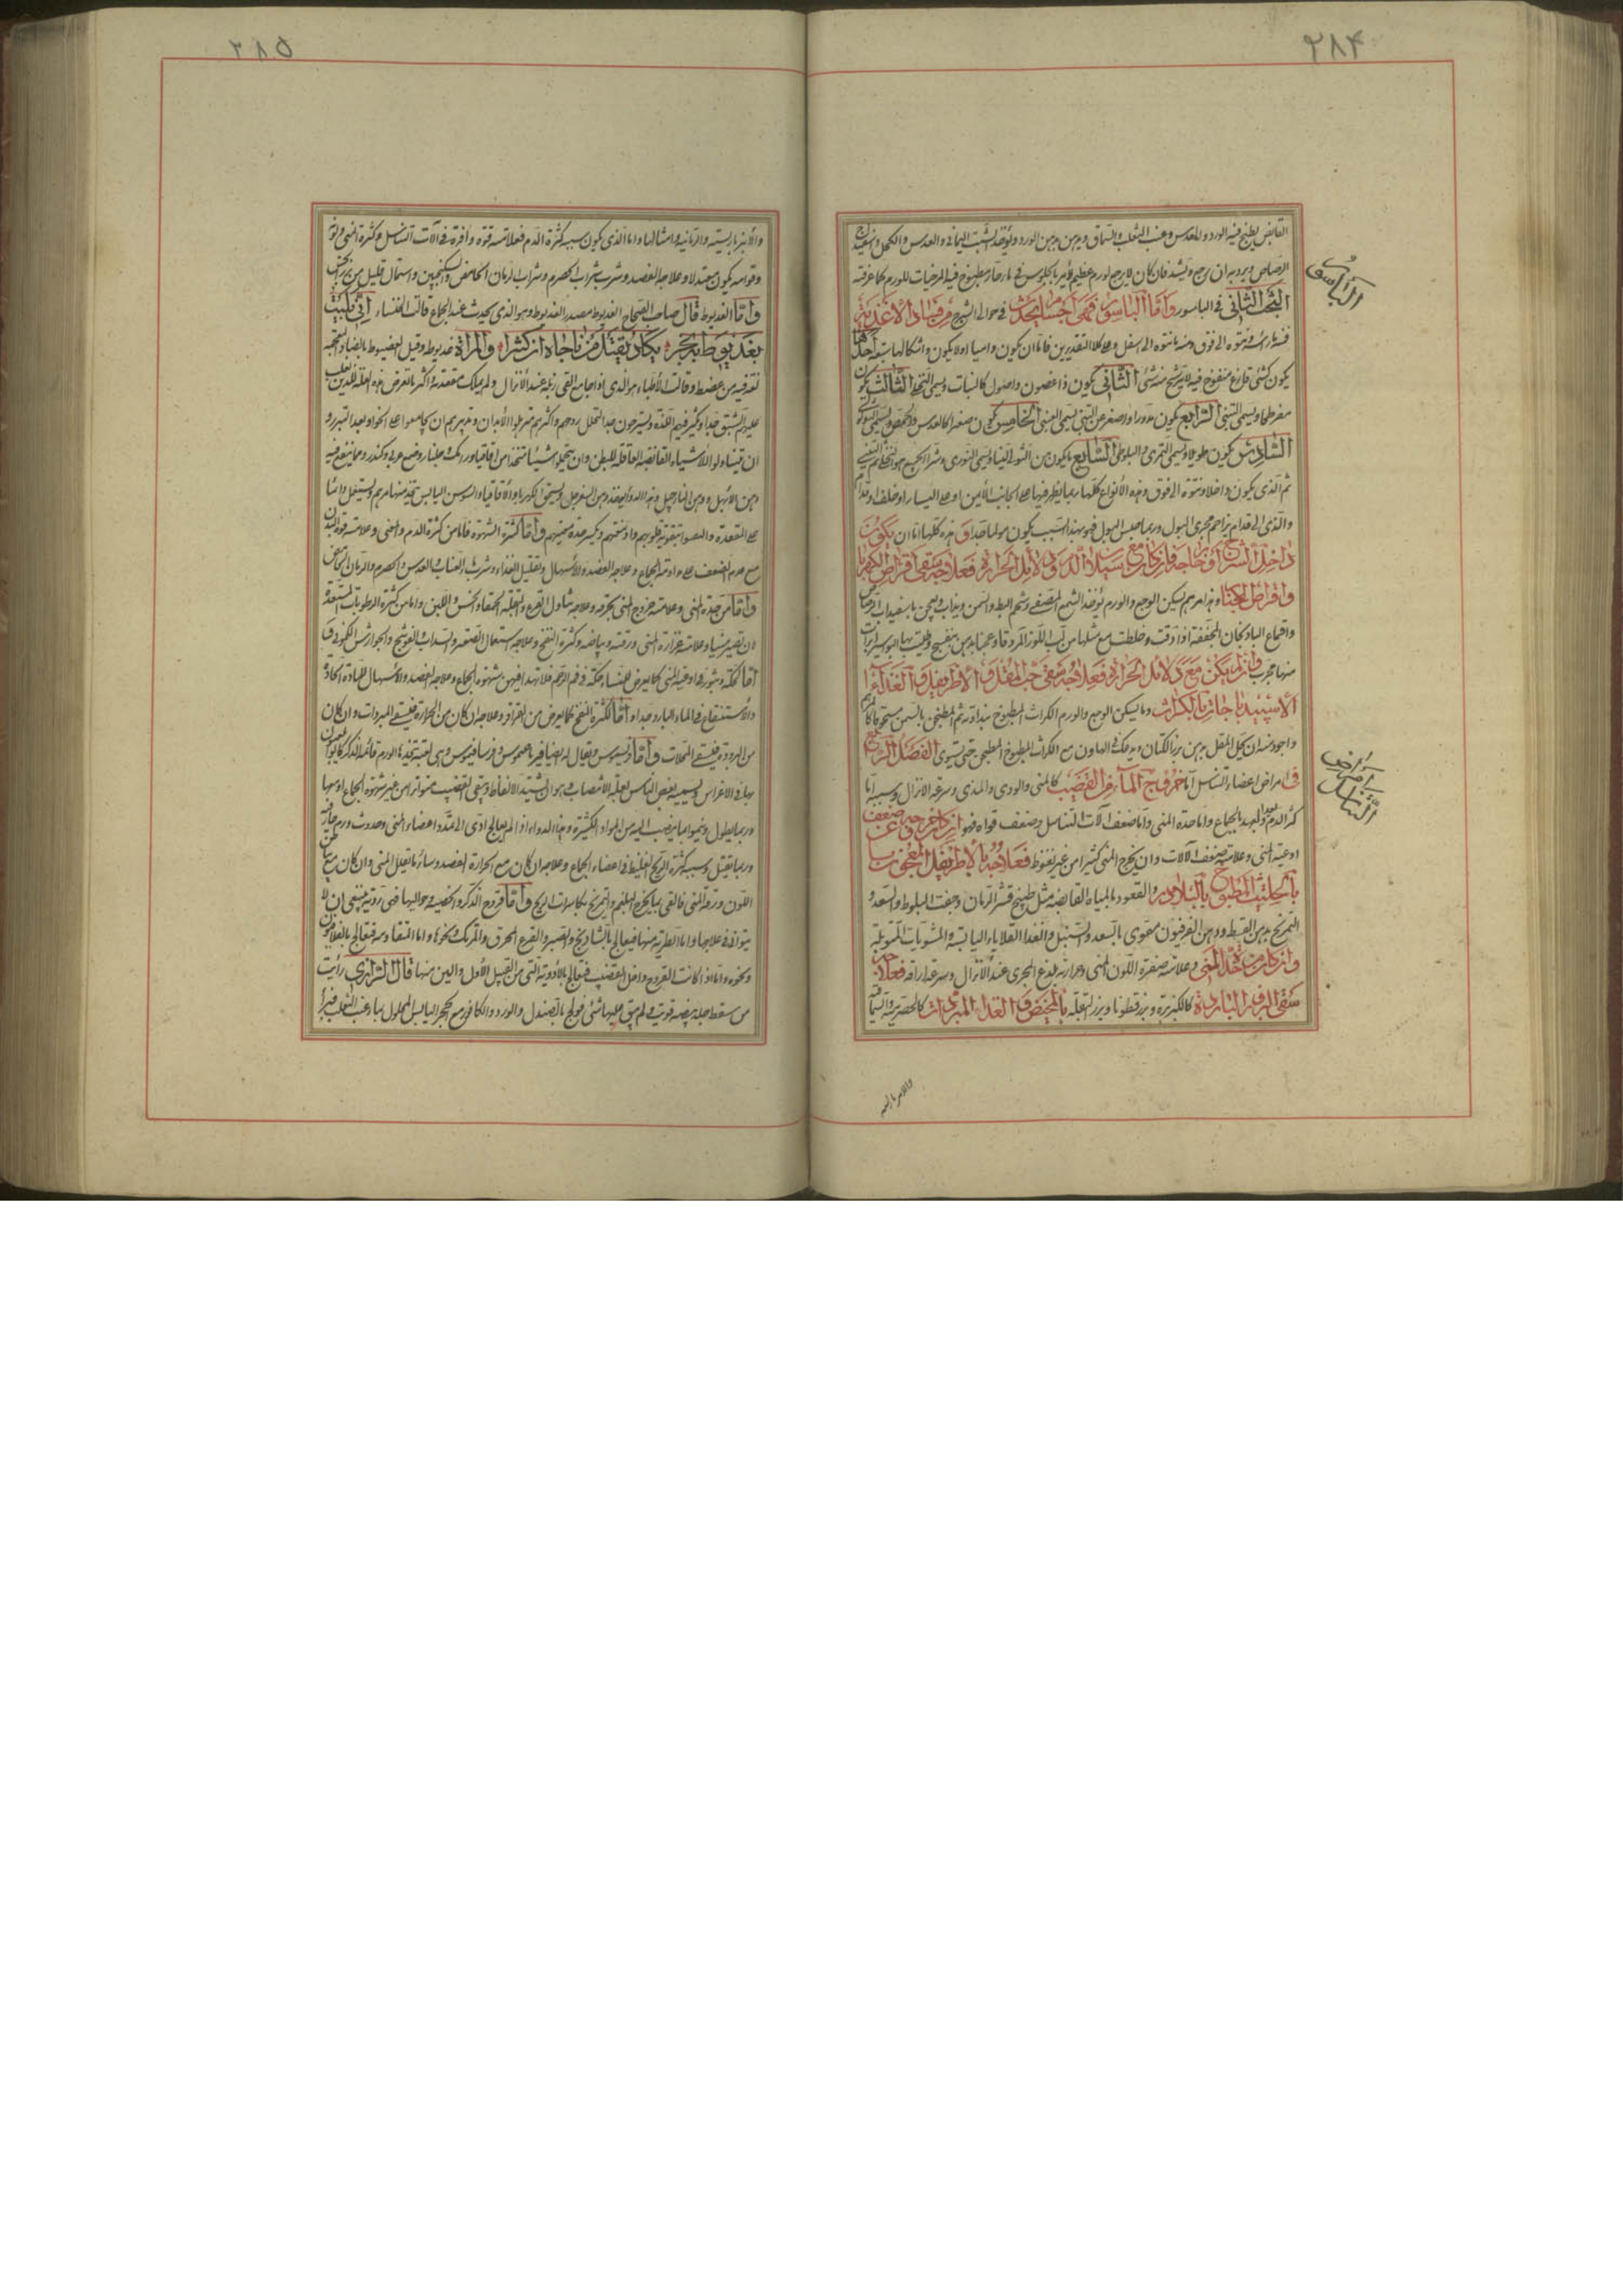 ٢٨٤
القابض يطبخ فيه الورد والعدس وعنب الثعلب والسماق ويدهن بدهن الورد ويؤخذ الشب اليماني والعدس والكحل واسفيداج
الرصاص ويرد به ان يرجع ويشد فان كان لا يرجع لورم عظيم يؤمر بالجلوس في ماء حار مطبوخ فيه المرخيات للورم كما عرفته
البحث الثاني في الباسور واما الباسور فهى اجسام تحدث في حوالى الشرج من فساد الاغذية
الباسور
فمنها رأسه ونتوه الى فوق ومنه ما نتوه الى اسفل وعلى كلا التقديرين فاما ان يكون داميا اولا يكون واشكالها سبعة احدها
يكون كشئ فارغ منفوخ فيه لا يترشح منه شئ الثاني يكون ذا غصون واصول كالنبات ويسمى النخلى الثالث يكون
مفرطحا ويسمى التينى الرابع يكون مدورا واصغر من التينى يسمى العنبى الخامس يكون صغيرا كالعدس والحمص ويسمى الثولولى
السادس يكون طويلا ويسمى التمرى والبلوطى السابع ما يكون بين التوت والنبات ويسمى التوثى وشر الجميع هو النخلى ثم التينى
ثم الذى يكون داخلا ونتوه الى فوق وهذه الأنواع كلها ربما يظهر فيها على الجانب الأيمن او على اليسار او خلف او قدام
والذى الى قدام يزاحم مجرى البول وربما حبس البول فهو بهذا السبب يكون مولما جدا وهذه كلها اما ان يكون
داخل الشرج او خارجه فان كان مع سيلان الدم ودلائل الحرارة فعلاجه سقى اقراص الكهربا
واقراص الجلنار وهذا مرهم يسكن الوجع والورم يؤخذ الشمع المصفى وشحم البط والسمن ويذاب ويعجن باسفيداب الرصاص
واقماع الباذنجان المجففة اذا دقت وخلطت مع مثلها من لب اللوز المر دقا وعجنا بدهن بنفسج وطليت بها البواسير ابرات
منها مجرب وان لم يكن مع دلائل الحرارة فعلاجه سقى حب المقل والاطريفل والغذاء
الاسفيدباجات بالكراث ومما يسكن الوجع والورم الكراث المطبوخ بنداوته ثم المطجن بالسمن مسحوقا كالمرهم
واجود منه ان يحل المقل بدهن بزر الكتان ويدعك في الهاون مع الكراث المطبوخ المطجن حتى يستوى الفصل الرابع
في امراض اعضاء التناسل اما خروج الماء من القضيب كالمنى والودى والمذى وسرعة الانزال وسببه اما
امراض التناسل
كثرة الدم وبعد العهد بالجماع واما حدة المنى واما ضعف آلات التناسل وضعف قواه فهو ان كان خروجه ضعف عن
اوعية المنى وعلامته ضعف الآلات وان يخرج المنى كثيرا من غير نعوظ فعلاجه بالاطريفل المعجون
بالحلتيت المطبوخ بالبلادر والقعود بالمياه القابضة مثل طبيخ قشر الرمان وجفت البلوط والسعد و
التمريخ بدهن القسط ودهن الفرفيون مقوى بالسعد والسنبل والغذا القلايا اليابسة والمشويات المتوبلة
وان كان من حدة المنى وعلامته صفرة اللون المنى وحرارته يلذع المجرى عند الانزال وسرعة اراقه فعلاجه
سقى البزور الباردة كالكزبرة وبزر قطونا وبزر البقلة بالمخيض والغذا المبردات كالحصرمية والسماقية
والامبرباريسية
٢٨٥
والأمبرباريسية والرمانية وامثالها واما الذى يكون سببه كثرة الدم فعلامته قوة وافرة في آلات التناسل وكثرة المنى ولو
وقوامه يكون معتدلا وعلاجه الفصد وشرب شراب الحصرم وشراب الرمان الحامض والسكنجبين واستعمال قليل من بزر الخس
واما العذيوط قال صاحب الصحاح العذيوط مصدر العذيوط وهو الذى يحدث عند الجماع قالت الخنساء انى بليت
بعذيوط به بخر يكاد يقتل من ناجاه ان كشرا والمرأة عذيوطة وقيل العضيوط بالضاد المعجمة
لغة فيه من عضط وقالت الأطباء هو الذى اذا جامع القى زبله عند الأنزال ولم يملك مقعدته واكثر ما تعرض هذه العلة للذين يغلب
عليهم الشبق جدا وتكثر فيهم اللذة ويسترخون جدا لتحلل روحهم واكثرهم مترهلوا الأبدان وتدبيرهم ان يجامعوا على الخوا وبعد التبرز و
ان يتناولوا الاشياء القابضة العاقلة للبطن وان يتحملوا شيئا متخذا من اقاقيا ورامك وجلنار وصمغ عربى وكندر ومما ينفع فيه
دهن الأبهل ودهن النارجيل وهذا الدواء يؤخذ دهن السفرجل ويسحق الكهربا والأقاقيا والسوسن اليابس يتخذ منها مرهم ويستعمل دائما
على المقعدة والعصر بتقوية قلوبهم وادمغتهم وتكسير حدة منيهم واما كثرة الشهوة فاما من كثرة الدم والمنى وعلامته قوة البدن
مع عدم الضعف على مداومة الجماع وعلاجه الفصد والأسهال وتقليل الغذاء وشرب العناب والعدس والحصرم والرمان الحامض
واما من حدة المنى وعلامته خروج المنى بحرقة وعلاجه تناول القرع والبقلة الحمقاء والخس واللبن واما من كثرة الرطوبات المستعدة
ان تصير منيا وعلامته غزارة المنى ورقته وبياضه وكثرة النفخ وعلاجه استعمال الصعتر والسذاب الفوتنج والجوارش الكمونى و
اما لحكة وبثور في اوعية المنى كما يعرض للنساء حكة في فم الرحم فلا يهدا فيهن شهوة الجماع وعلاجه الفصد والأسهال للمادة الحادة
والأستنقاع في الماء البارد جدا واما لكثرة النفخ كما يعرض من المراق وعلاجه ان كان من الحرارة فيسقى المبردات وان كان
من البرودة فيسقى المحللات واما فريسموس ويقال له ايضا فرياسموس وهى لعبة تتخذها الورم قائمة الذكر كانوا يلعبون
بها في الاعراس ويسميه بعض الناس لعلة الأنتصاب وهو ان يشتد الانعاظ ويبقى القضيب متوترا من غير شهوة الجماع او معها
وربما يطول وينمو لما ينصب اليه من المواد الكثيرة وهذا الداء اذا لم يعالج ادى الى تمدد اعضاء المنى وحدوث ورم حار فيه
وربما يقتل وسببه كثرة الريح الغليظ في اعضاء الجماع وعلاجه ان كان مع الحرارة الفصد وسائر ما يقلل المنى وان كان مع بياض
اللون ورقة المنى فالقى بما يخرج البلغم والتمريخ بكاسرات الريح واما قروح الذكر والخصية وحواليها فهى ردية ينبغى ان لا
يتوانى في علاجها واما الطرية منها فيعالج بالشاذنج والصبر والقرع المحرق والمرتك ونحوها واما المتقادمة فتعالج بالقلافون
ونحوه واما اذا كانت القروح داخل القضيب فيعالج بالأدوية التى من القبيل الأول والين منها قال الرازى رأيت
من سقط جلد بيضه قوية ولم يبق عليها شئ فولج بالصندل والورد والكافور مع الحجر اليابس المحلول بماء عنب الثعلب فبرأ